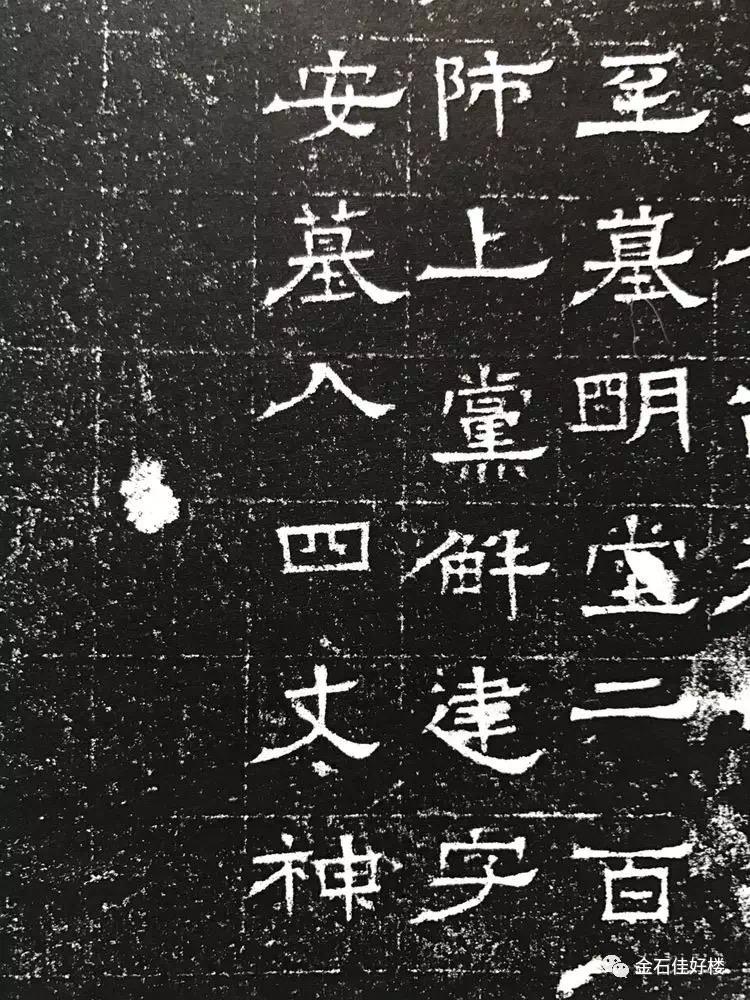 至墓明堂二百
師上黨解建字
安墓入四丈神
金石佳好楼